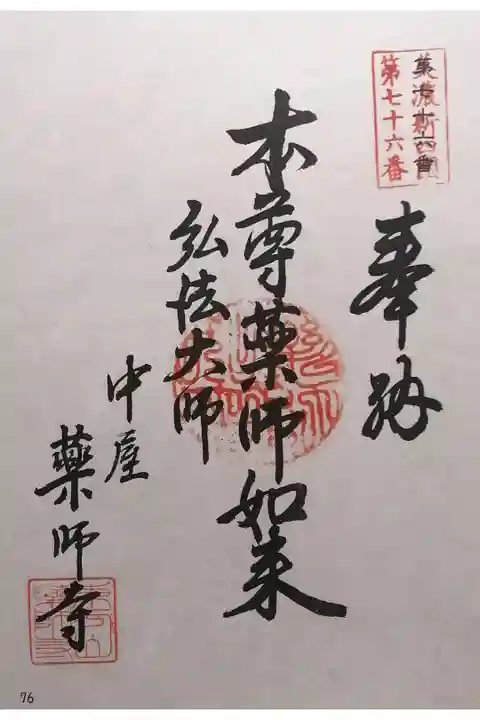 美濃新四国
第七十六番
奉納
本尊薬師如来
弘法大師
中屋
薬師寺
76